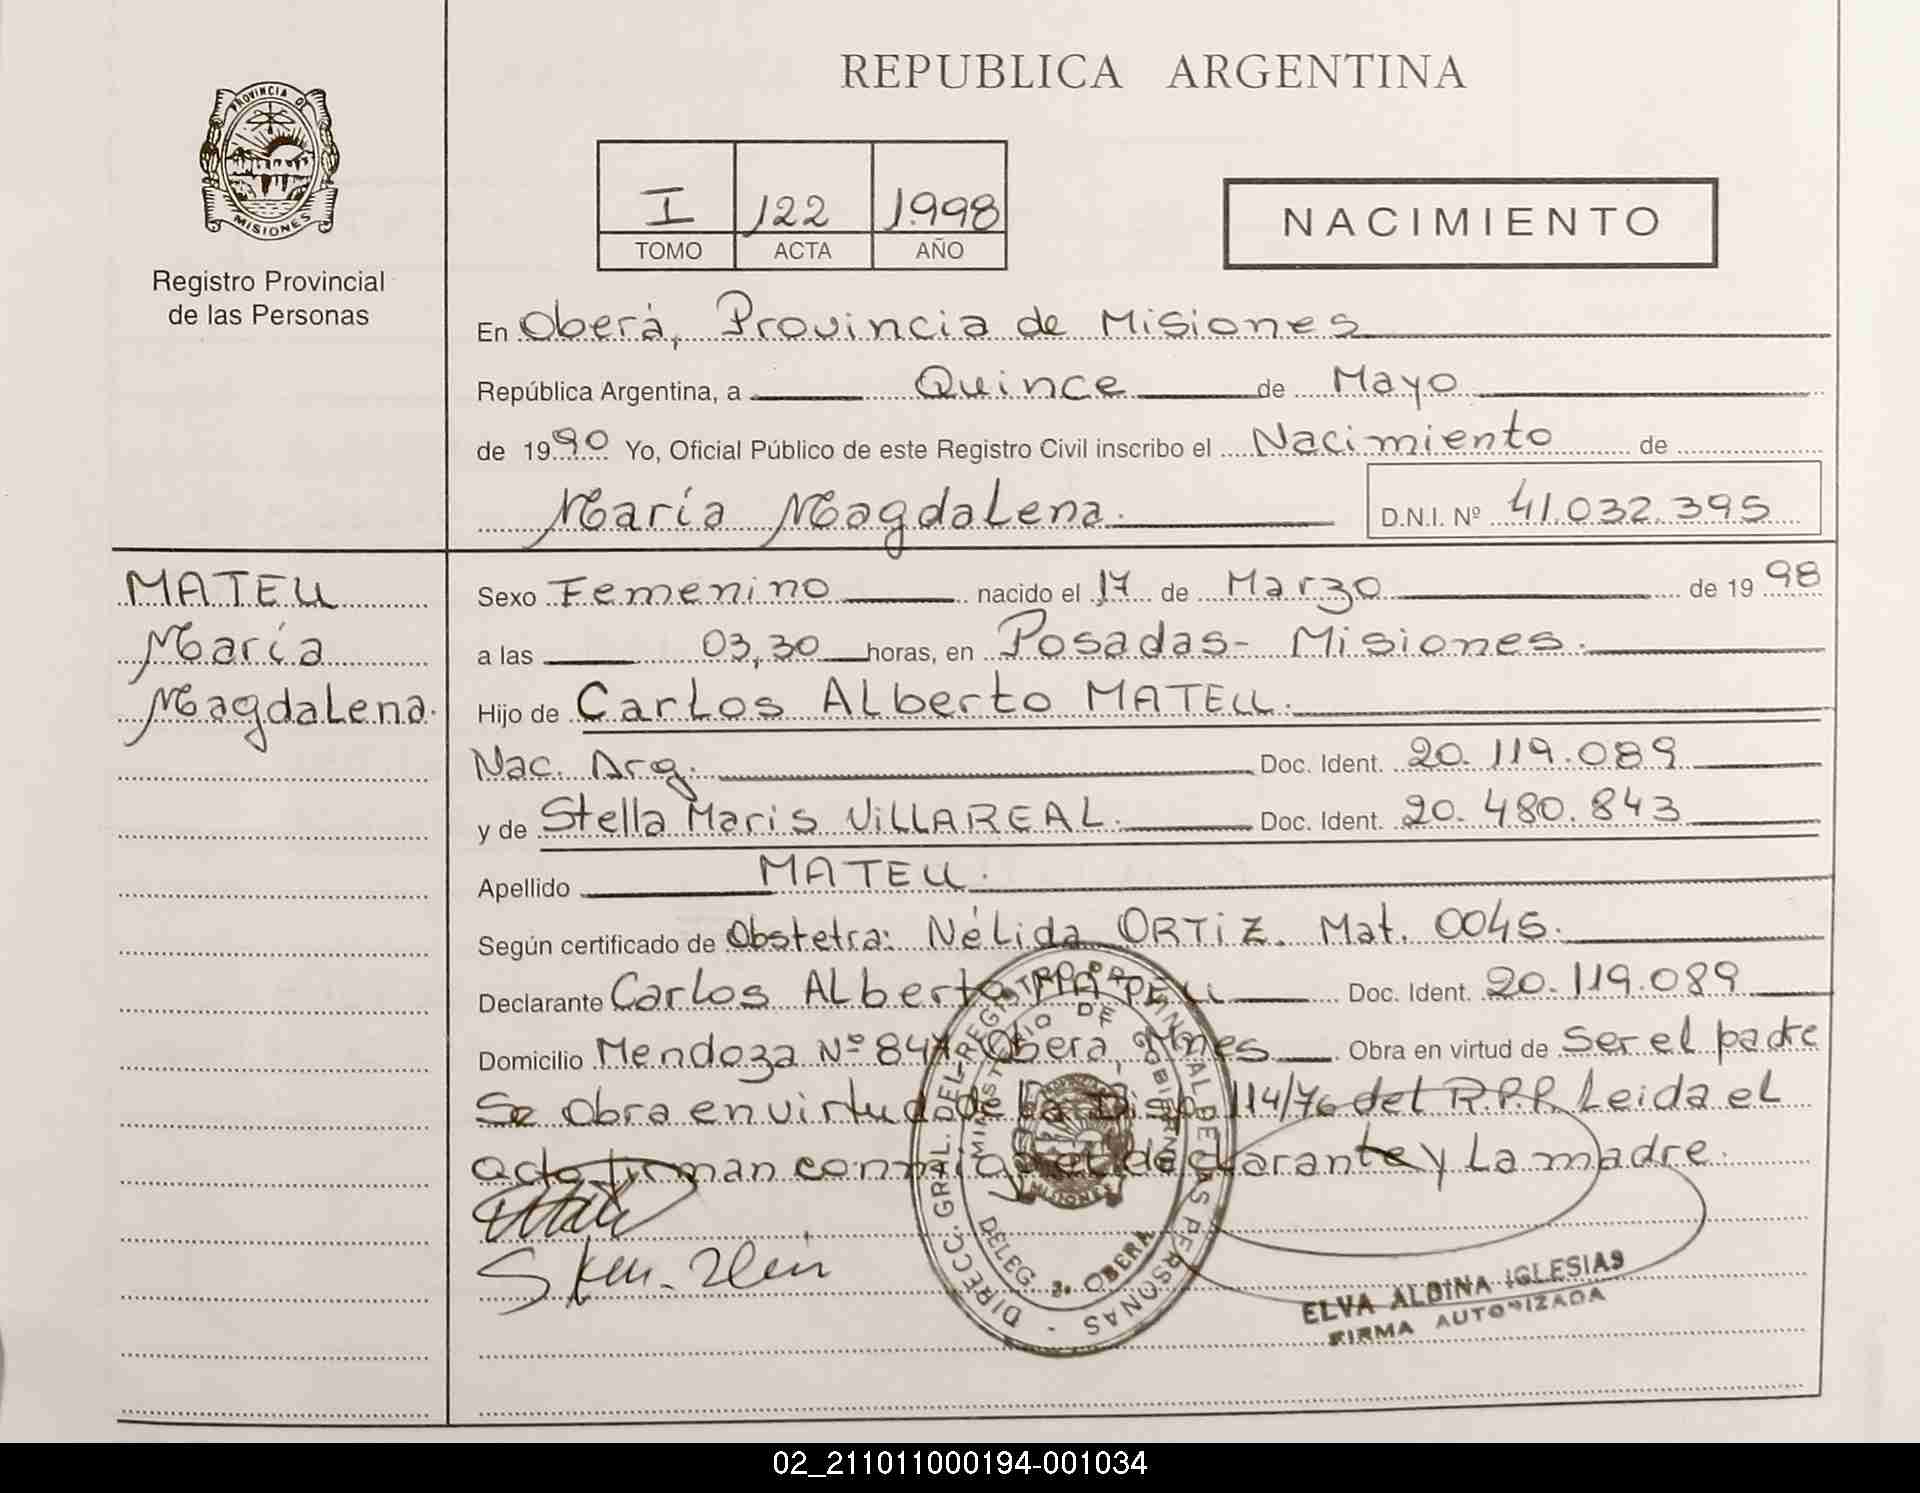 PROVINCIA DE
MISIONES
Registro Provincial
de las Personas
REPUBLICA ARGENTINA
I 122 1.998
TOMO ACTA AÑO
NACIMIENTO
En Oberá, Provincia de Misiones
República Argentina, a Quince de Mayo
de 1990 Yo, Oficial Público de este Registro Civil inscribo el Nacimiento de
María Magdalena. D.N.I. Nº 41.032.395
MATEU
María
Magdalena.
Sexo Femenino nacido el 17 de Marzo de 1998
a las 03,30 horas, en Posadas- Misiones.
Hijo de Carlos Alberto MATEU.
Nac. Arg. Doc. Ident. 20.119.089
y de Stella Maris ViLLAREAL. Doc. Ident. 20.480.843
Apellido MATEU.
Según certificado de Obstetra: Nélida ORTiZ. Mat. 0045.
Declarante Carlos Alberto MATEU Doc. Ident. 20.119.089
Domicilio Mendoza Nº 847 Oberá, Mnes Obra en virtud de Ser el padre
Se obra en virtud de la Disp. 114/76 del R.P.P. Leida el
acta firman conmigo el declarante y La madre.
DIRECC. GRAL. DEL REGISTRO PROVINCIAL DE LAS PERSONAS
MINISTERIO DE GOBIERNO
MISIONES
DELEG. OBERA
ELVA ALBINA IGLESIAS
FIRMA AUTORIZADA
02_211011000194-001034